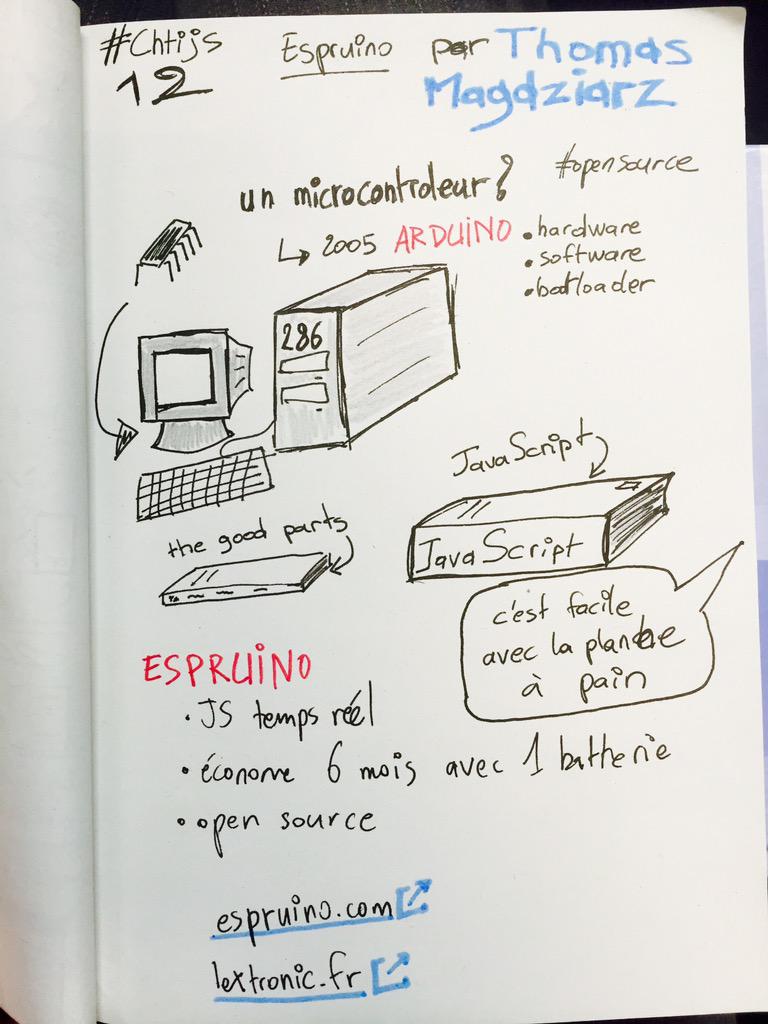 #Chtijs
12
Espruino par Thomas
Magdziarz
#opensource
un microcontroleur?
2005 ARDUINO
• hardware
• software
• bootloader
286
JavaScript
JavaScript
the good parts
c'est facile
avec la planche
à pain
ESPRUINO
• JS temps réel
• économe 6 mois avec 1 batterie
• open source
espruino.com
lextronic.fr